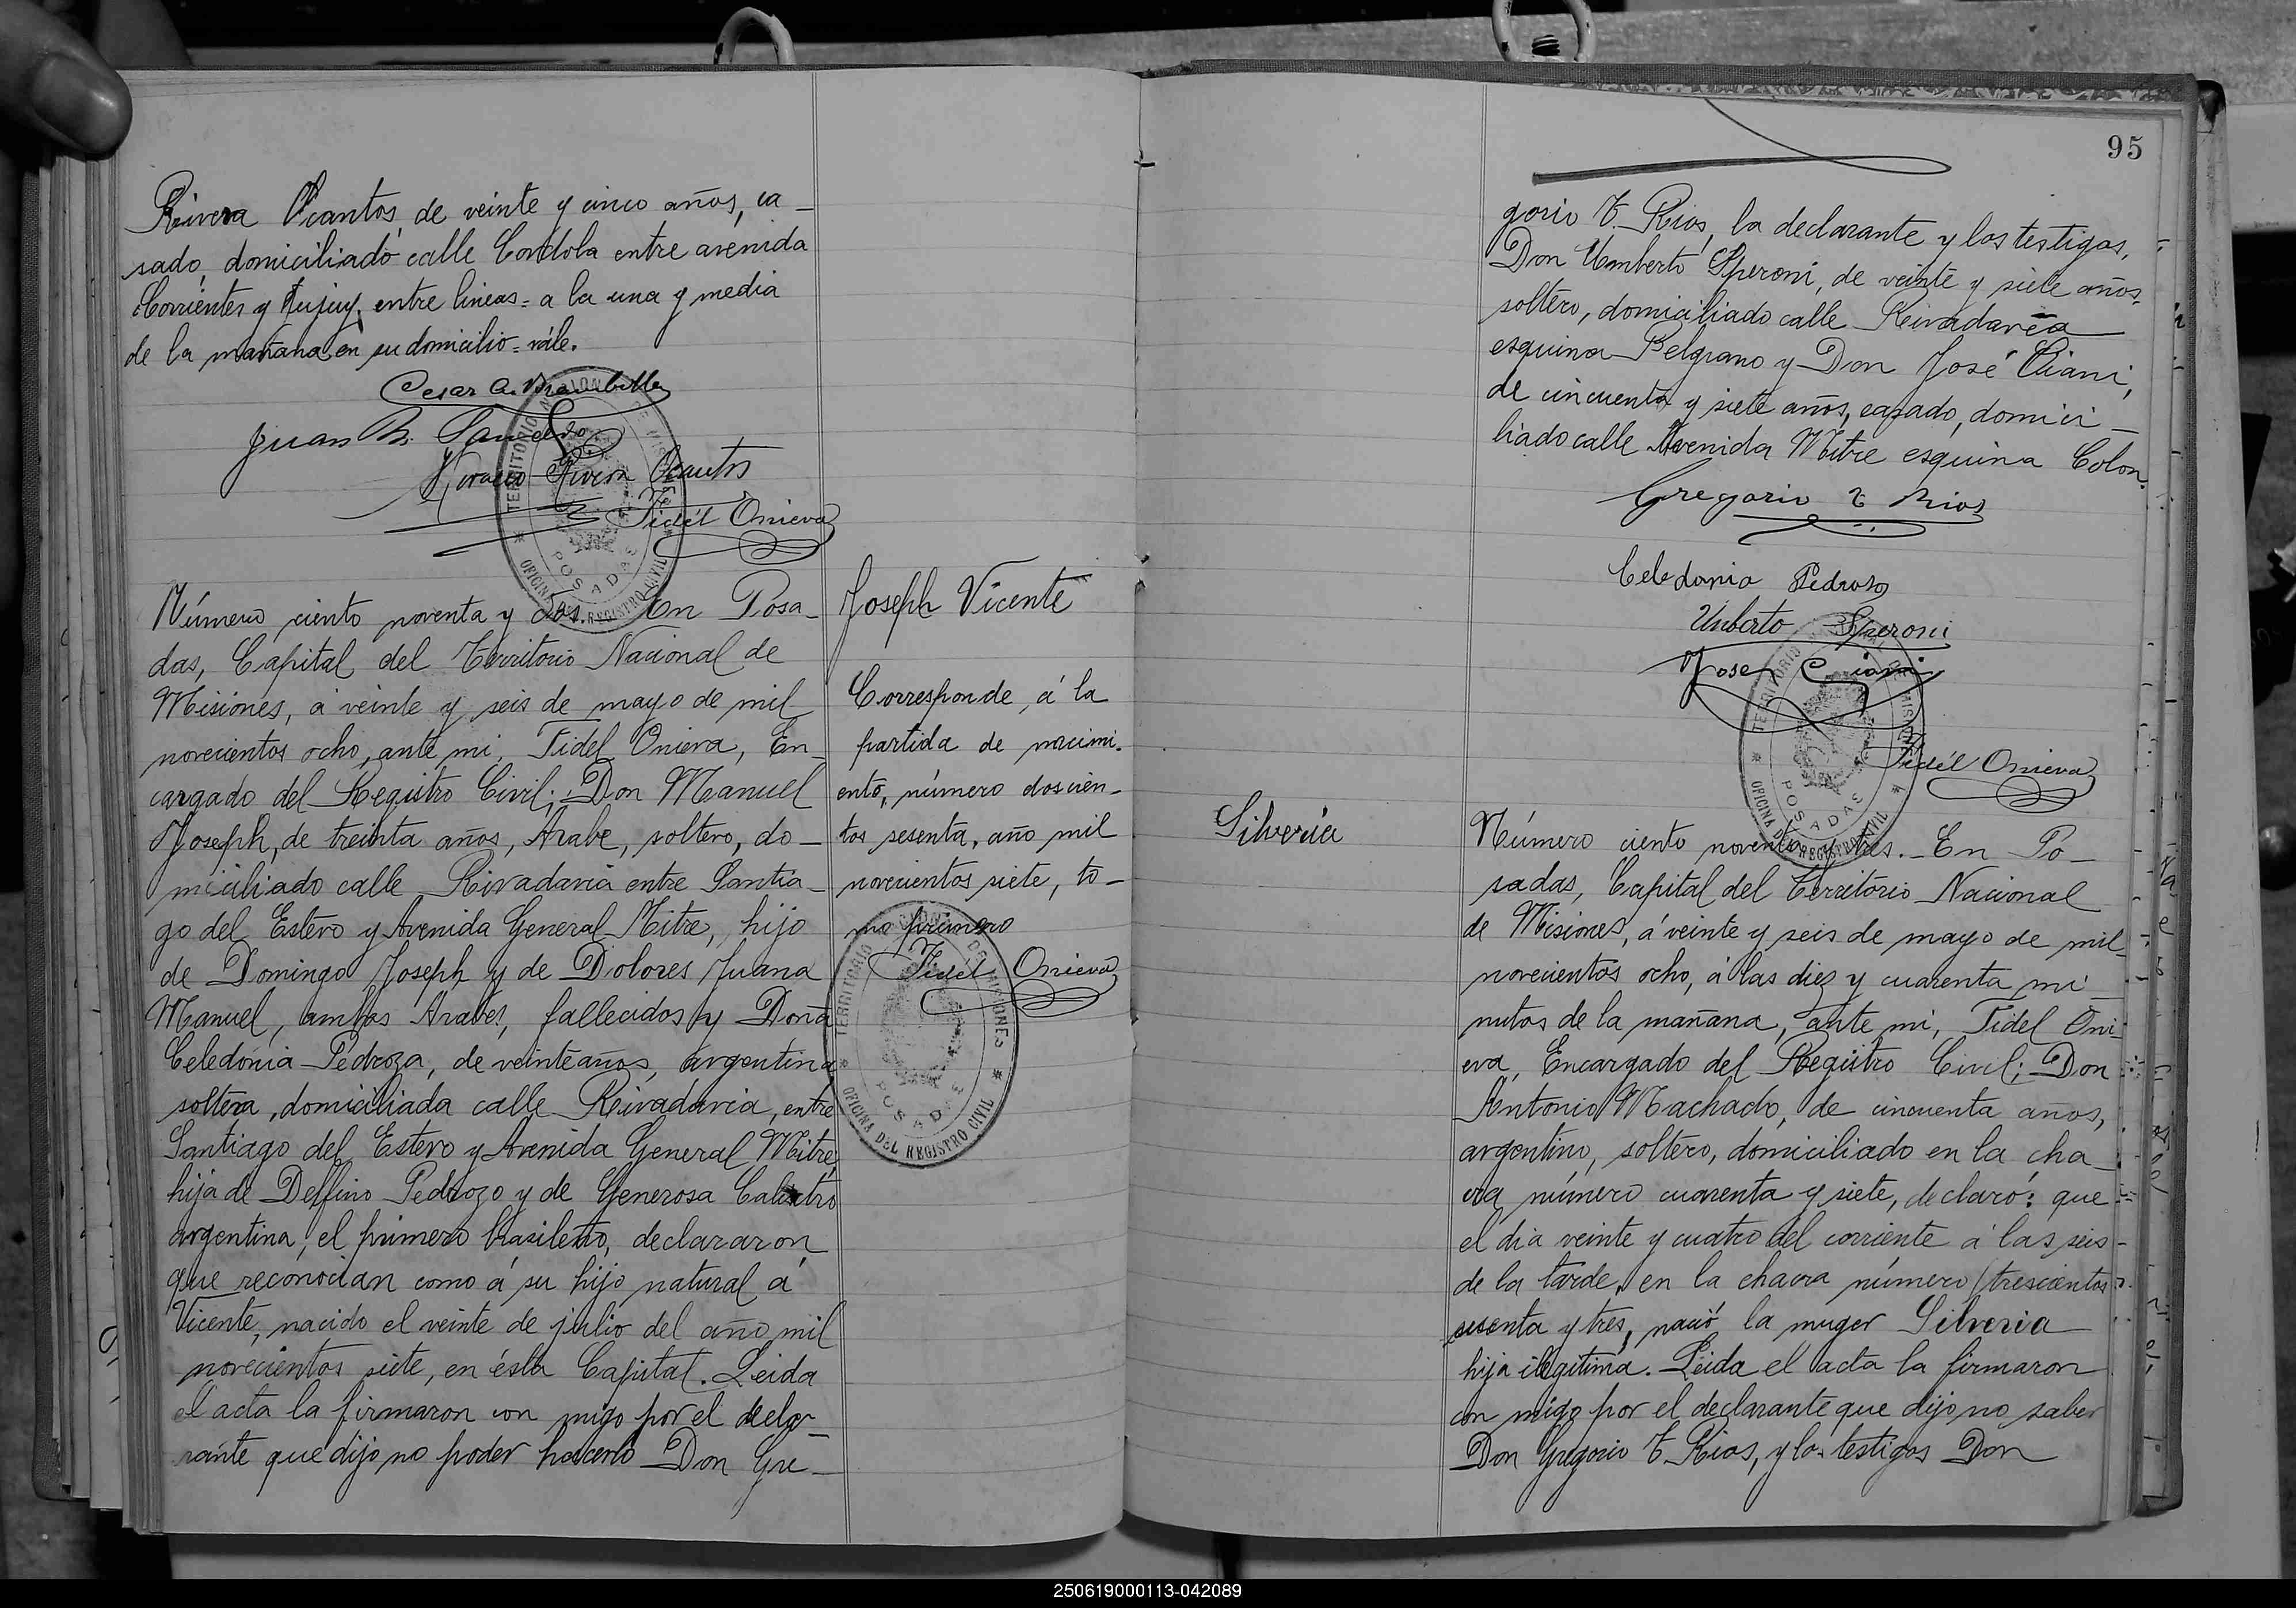 Rivera Ocantos, de veinte y cinco años, ca-
sado, domiciliado calle Cordola entre avenida
Corrientes y Jujuy, entre lineas = a la una y media
de la mañana en su domicilio = vále.
Cesar A.
Juan B.
Horacio Rivera Ocantos
Fidél Onieva
TERRITORIO NACIONAL DE MISIONES
POSADAS
OFICINA DEL REGISTRO CIVIL
Número ciento noventa y dos. En Posa-
das, Capital del Territorio Nacional de
Misiones, á veinte y seis de mayo de mil
novecientos ocho, ante mi, Fidel Onieva, En-
cargado del Registro Civil; Don Manuel
Joseph, de treinta años, Arabe, soltero, do-
miciliado calle Rivadavia entre Santia-
go del Estero y Avenida General Mitre, hijo
de Domingo Joseph y de Dolores Juana
Manuel, ambos Arabes, fallecidos y Doña
Celedonia Pedroza, de veinte años, argentina
soltera, domiciliada calle Rivadavia, entre
Santiago del Estero y Avenida General Mitre,
hija de Delfino Pedrozo y de Generosa
argentina, el primero brasilero, declararon
que reconocian como á su hijo natural á
Vicente, nacido el veinte de julio del año mil
novecientos siete, en ésta Capital. Leida
el acta la firmaron con migo por el decla-
rante que dijo no poder hacerlo Don Gre-
Joseph Vicente
Corresponde, á la
partida de nacimi-
ento, número doscien-
tos sesenta, año mil
novecientos siete, to-
mo primero
Fidél Onieva
TERRITORIO NACIONAL DE MISIONES
POSADAS
OFICINA DEL REGISTRO CIVIL
95
gorio T. Rios, la declarante y los testigos,
Don Umberto Speroni, de veinte y siete años,
soltero, domiciliado calle Rivadavia
esquina Belgrano y Don José Ciani,
de cincuenta y siete años, casado, domici-
liado calle Avenida Mitre esquina Colon.
Gregorio T Rios
Celedonia Pedroso
Umberto Speroni
Jose Ciani
TERRITORIO NACIONAL DE MISIONES
POSADAS
OFICINA DEL REGISTRO CIVIL
Fidél Onieva
Silveria
Número ciento noventa y tres. - En Po-
sadas, Capital del Territorio Nacional
de Misiones, á veinte y seis de mayo de mil
novecientos ocho, á las diez y cuarenta mi-
nutos de la mañana, ante mi, Fidel Oni-
eva, Encargado del Registro Civil; Don
Antonio Machado, de cincuenta años,
argentino, soltero, domiciliado en la cha-
cra número cuarenta y siete, declaró: que
el dia veinte y cuatro del corriente á las seis
de la tarde, en la chacra número trescientos
sesenta y tres, nació la muger Silveria
hija ilegitima. Leida el acta la firmaron
con migo por el declarante que dijo no saber
Don Gregorio T. Rios, y los testigos Don
250619000113-042089